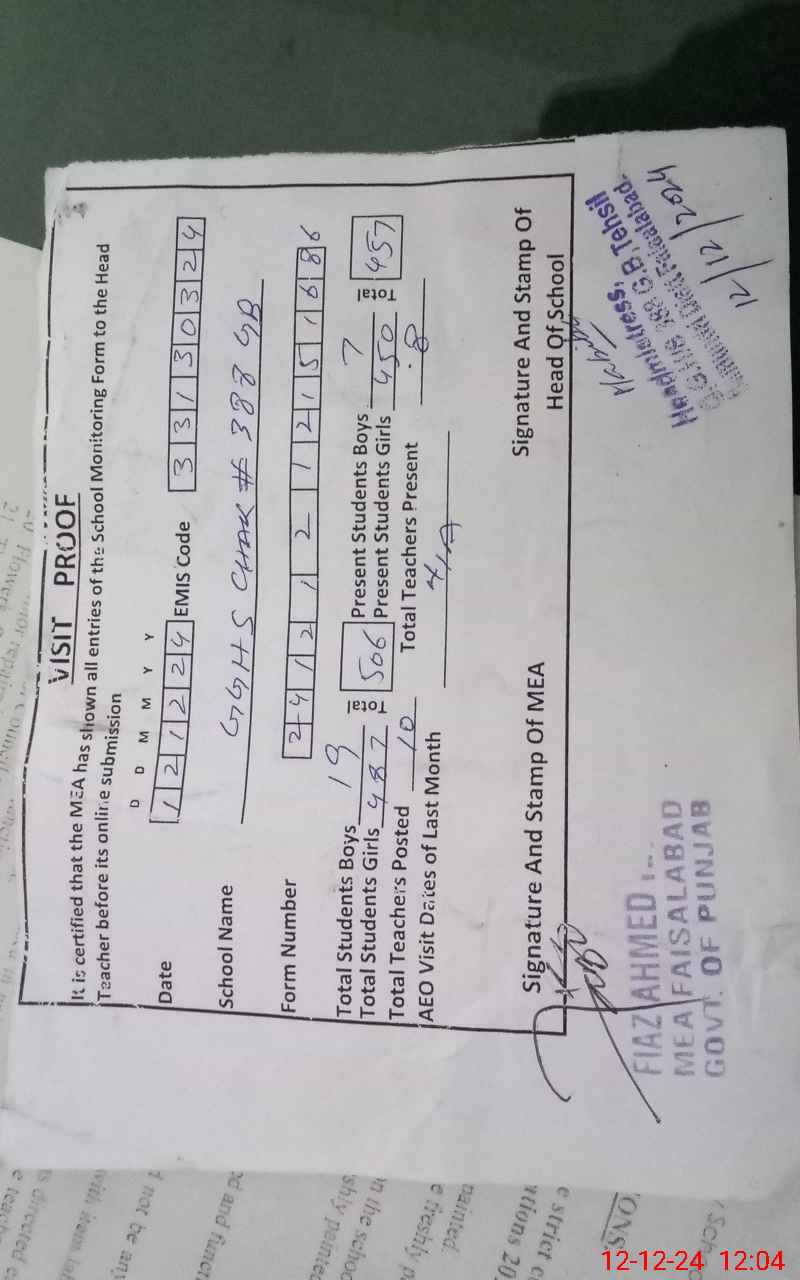 VISIT PROOF
It is certified that the MEA has shown all entries of the School Monitoring Form to the Head
Teacher before its online submission
D D M M Y Y
Date 121224 EMIS Code 33130324
School Name GGHS CHAK # 388 GB
Form Number 24121212151686
Total Students Boys 19 Total 506 Present Students Boys 7 Total 457
Total Students Girls 487 Present Students Girls 450
Total Teachers Posted 10 Total Teachers Present 8
AEO Visit Dates of Last Month
Signature And Stamp Of MEA
Signature And Stamp Of
Head Of School
FIAZ AHMED
MEA FAISALABAD
GOVT. OF PUNJAB
Headmistress, Tehsil
G.B,
Faisalabad.
12/12/2024
12-12-24 12:04